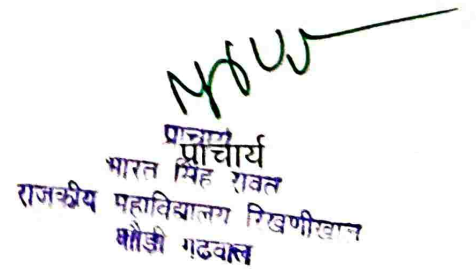 प्राचार्य
प्राचार्य
भारत सिंह रावत
राजकीय महाविद्यालय रिखणीखाल
पौड़ी गढवाल